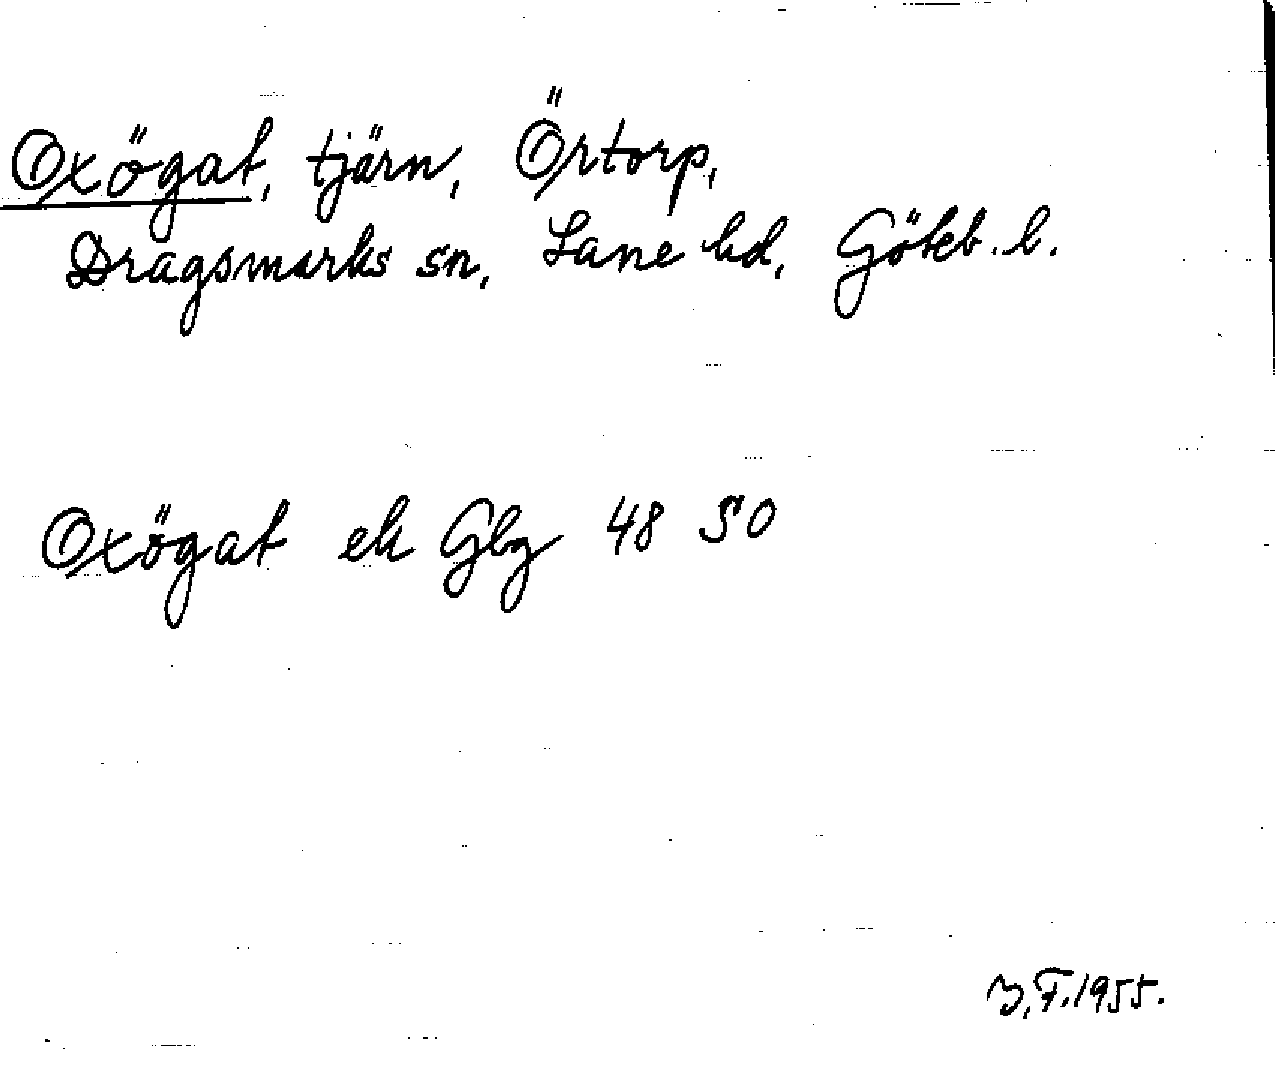 Oxögat, tjärn, Örtorp,
Dragsmarks sn, Lane hd, Göteb. l.
Oxögat ek Gbg 48 SO
F. 1955.